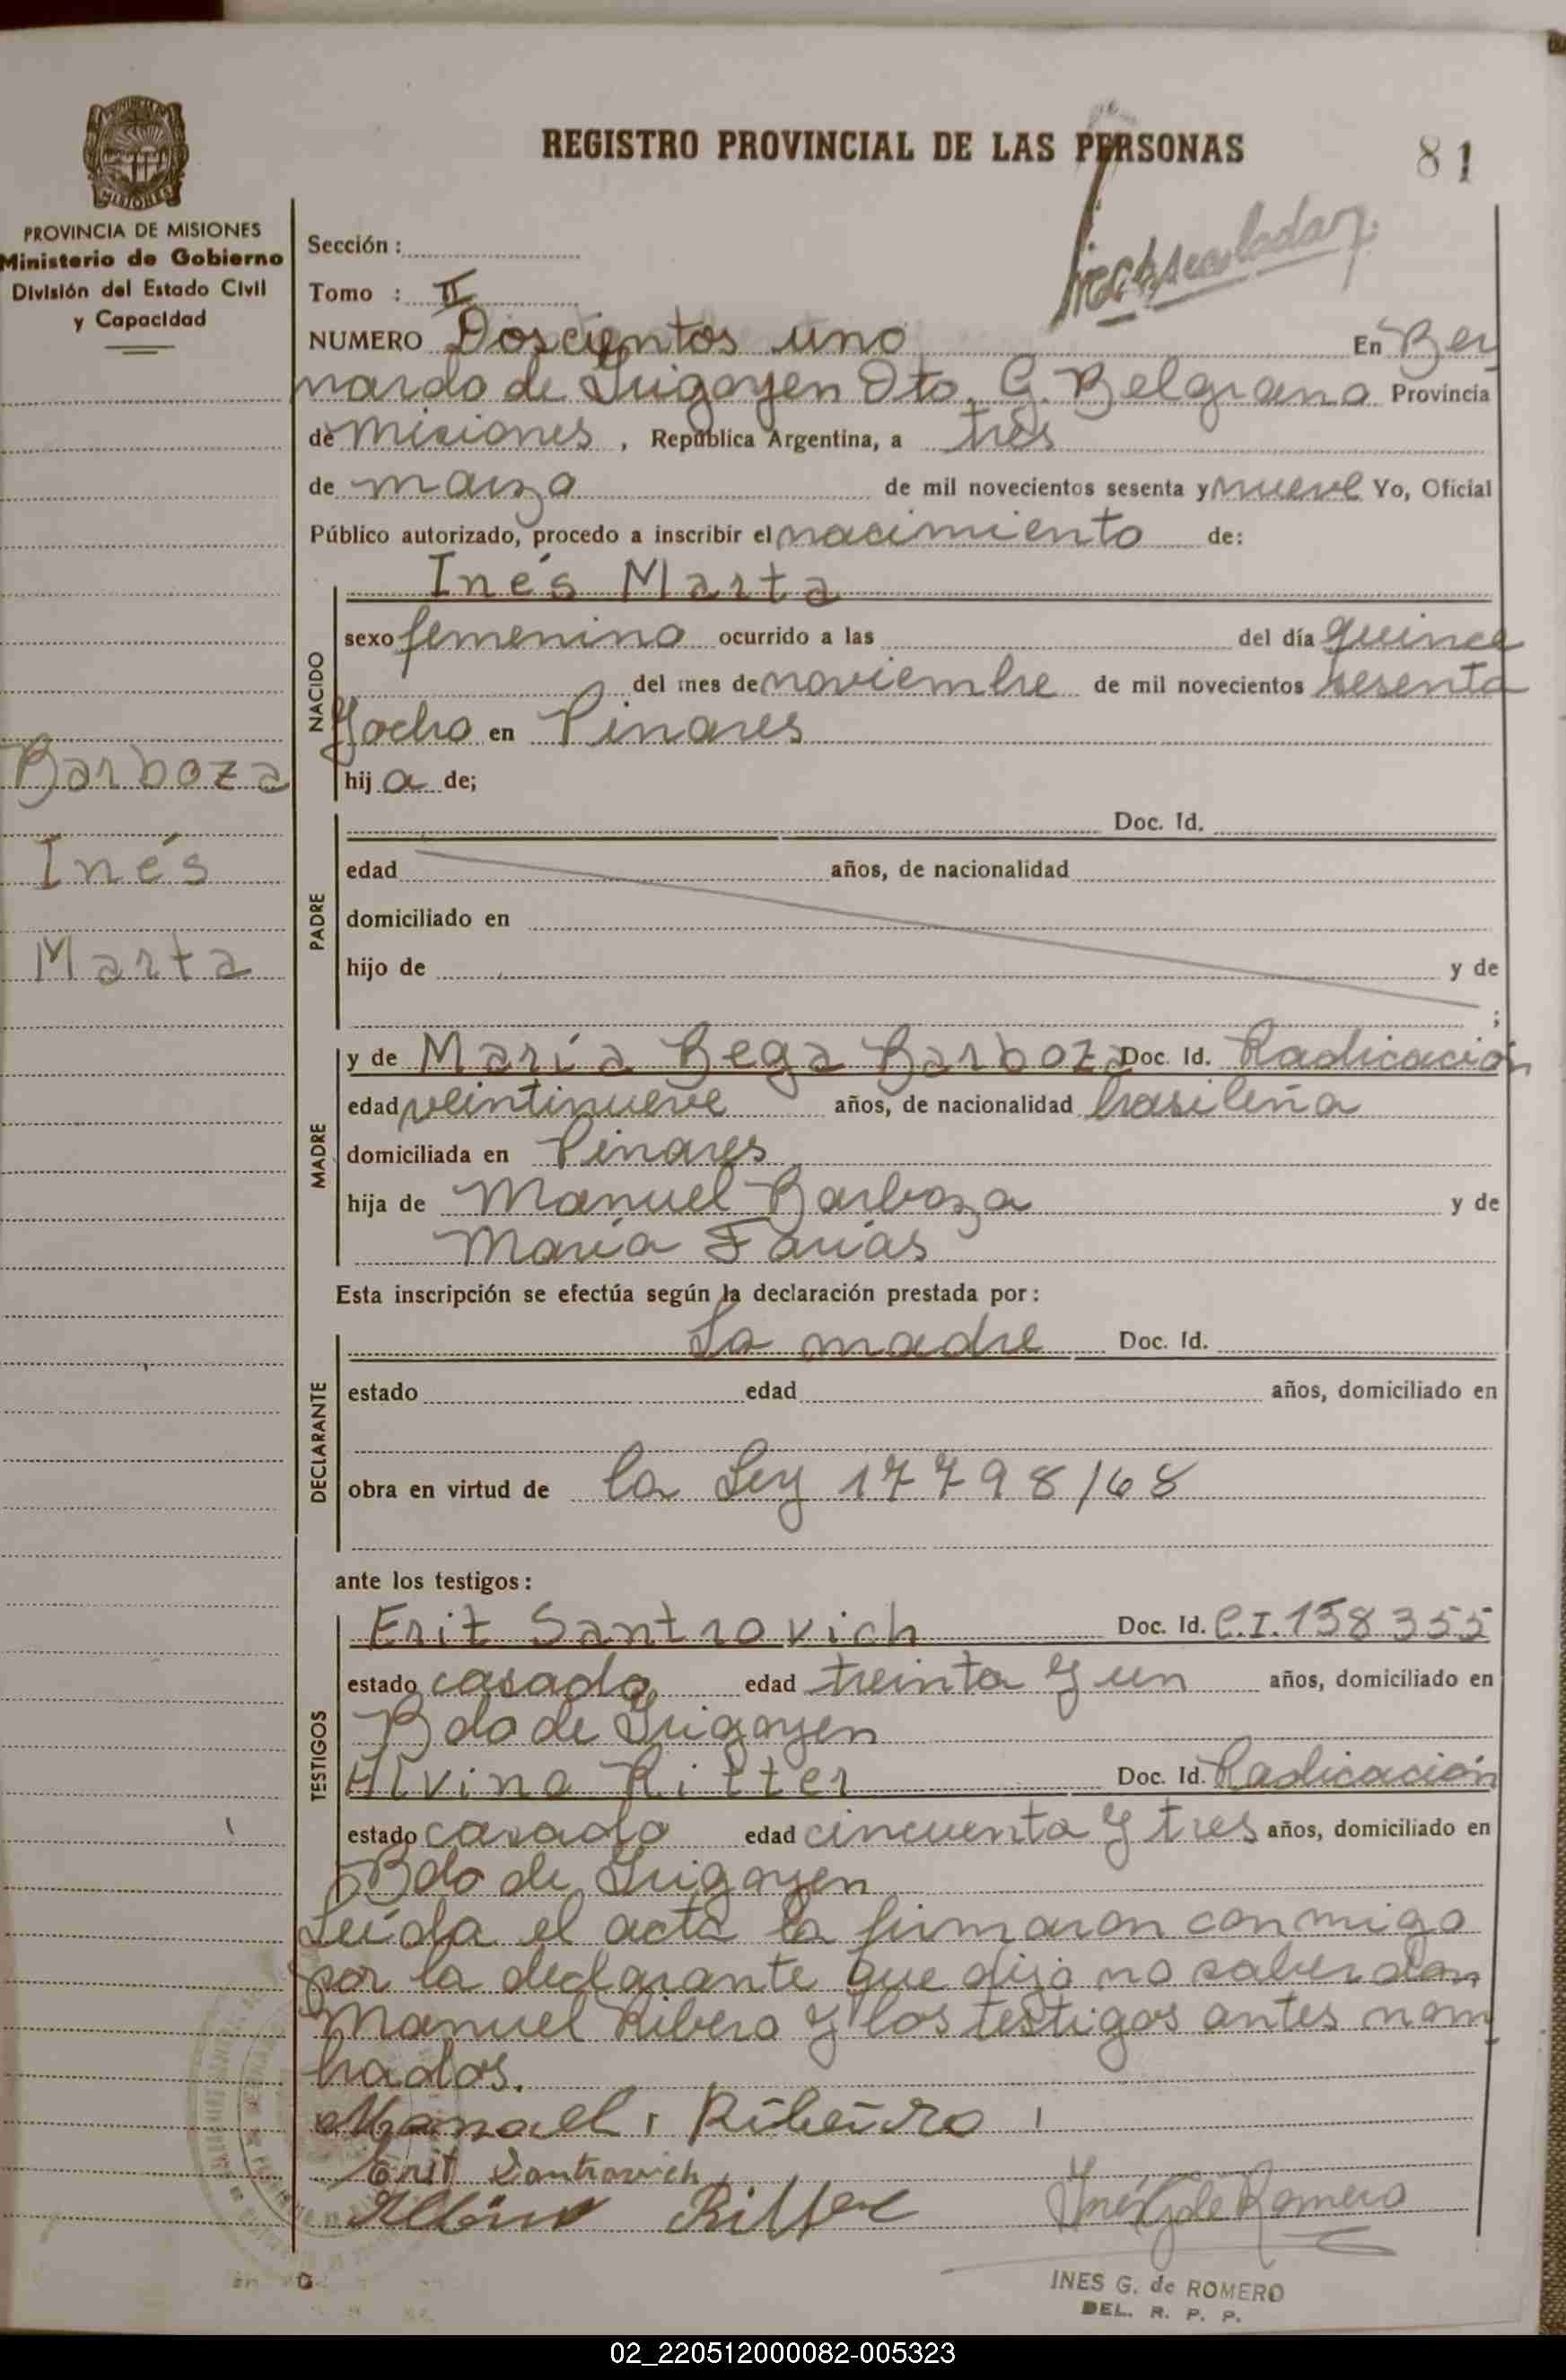 REGISTRO PROVINCIAL DE LAS PERSONAS
81
MISIONES
PROVINCIA DE MISIONES
Ministerio de Gobierno
División del Estado Civil
y Capacidad
Sección :
Tomo : II
NUMERO Doscientos uno En Ber
nardo de Irigoyen Dto. G. Belgrano Provincia
de misiones , República Argentina, a tres
de marzo de mil novecientos sesenta y nueve Yo, Oficial
Público autorizado, procedo a inscribir el nacimiento de:
Inés Marta
NACIDO
sexo femenino ocurrido a las del día quince
del mes de noviembre de mil novecientos sesenta
y ocho en Pinares
hij a de;
Barboza
Inés
Marta
PADRE
Doc. Id.
edad años, de nacionalidad
domiciliado en
hijo de y de
;
MADRE
y de María Bega Barboza Doc. Id. Radicación
edad veintinueve años, de nacionalidad brasileña
domiciliada en Pinares
hija de Manuel Barboza y de
María Farias
Esta inscripción se efectúa según la declaración prestada por :
DECLARANTE
La madre Doc. Id.
estado edad años, domiciliado en
obra en virtud de la Ley 17798/68
ante los testigos :
TESTIGOS
Erit Santrovich Doc. Id. C.I. 158355
estado casado edad treinta y un años, domiciliado en
Bdo de Irigoyen
Alvino Ritter Doc. Id. Radicación
estado casado edad cincuenta y tres años, domiciliado en
Bdo de Irigoyen
Leída el acta la firmaron conmigo
por la declarante que dijo no saber don
Manuel Ribero y los testigos antes nom
brados.
Manael Ribeiro
Erit Santrovich
Albino Ritter
Inés G de Romero
INES G. de ROMERO
DEL. R. P. P.
02_220512000082-005323